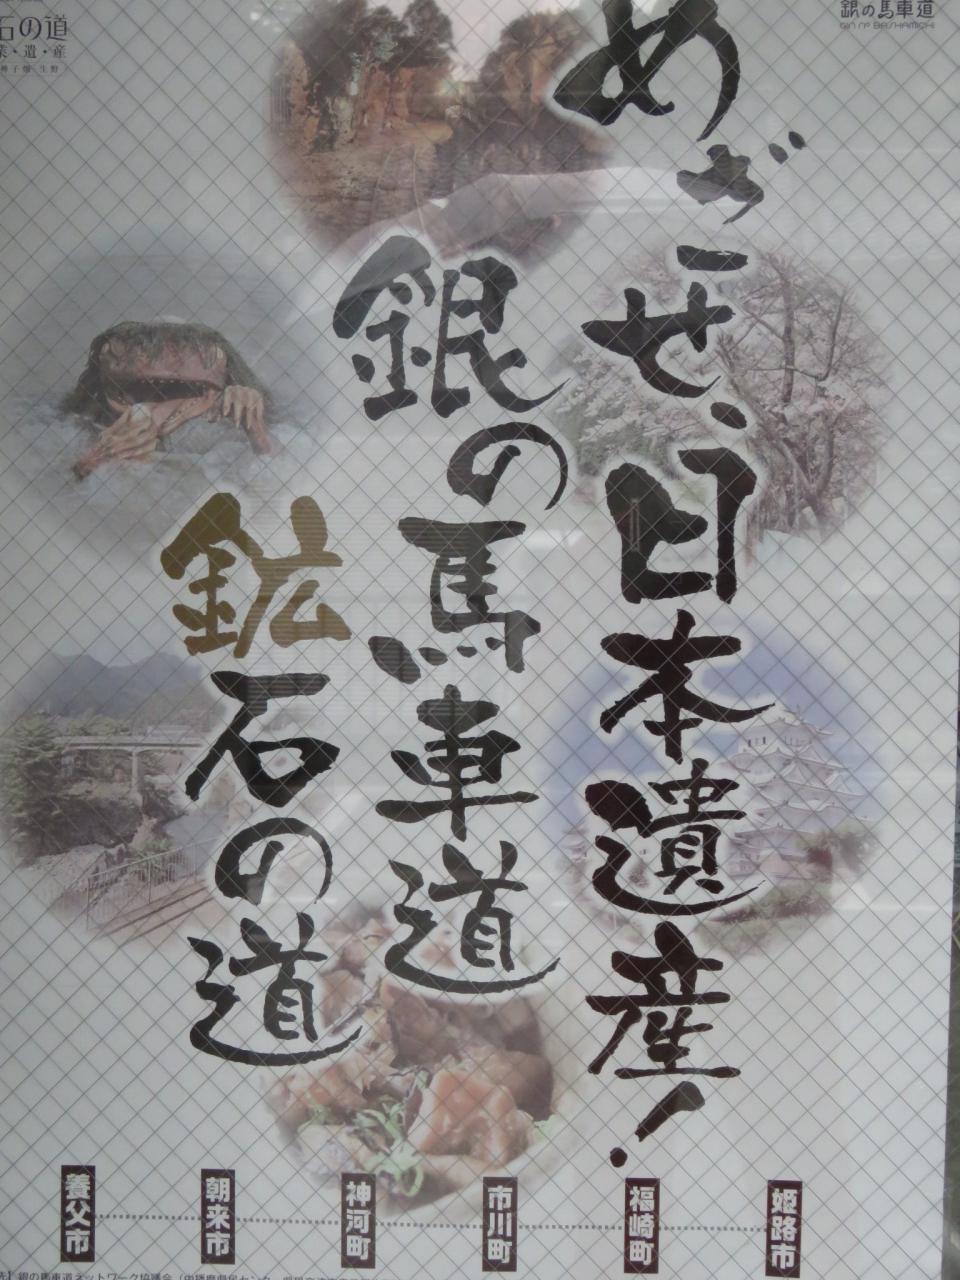 石の道
業・遺・産
神子畑 生野
銀の馬車道
GIN NO BASHAMICHI
めざせ、日本遺産!
銀の馬車道
鉱石の道
養父市
朝来市
神河町
市川町
福崎町
姫路市
銀の馬車道ネットワーク協議会